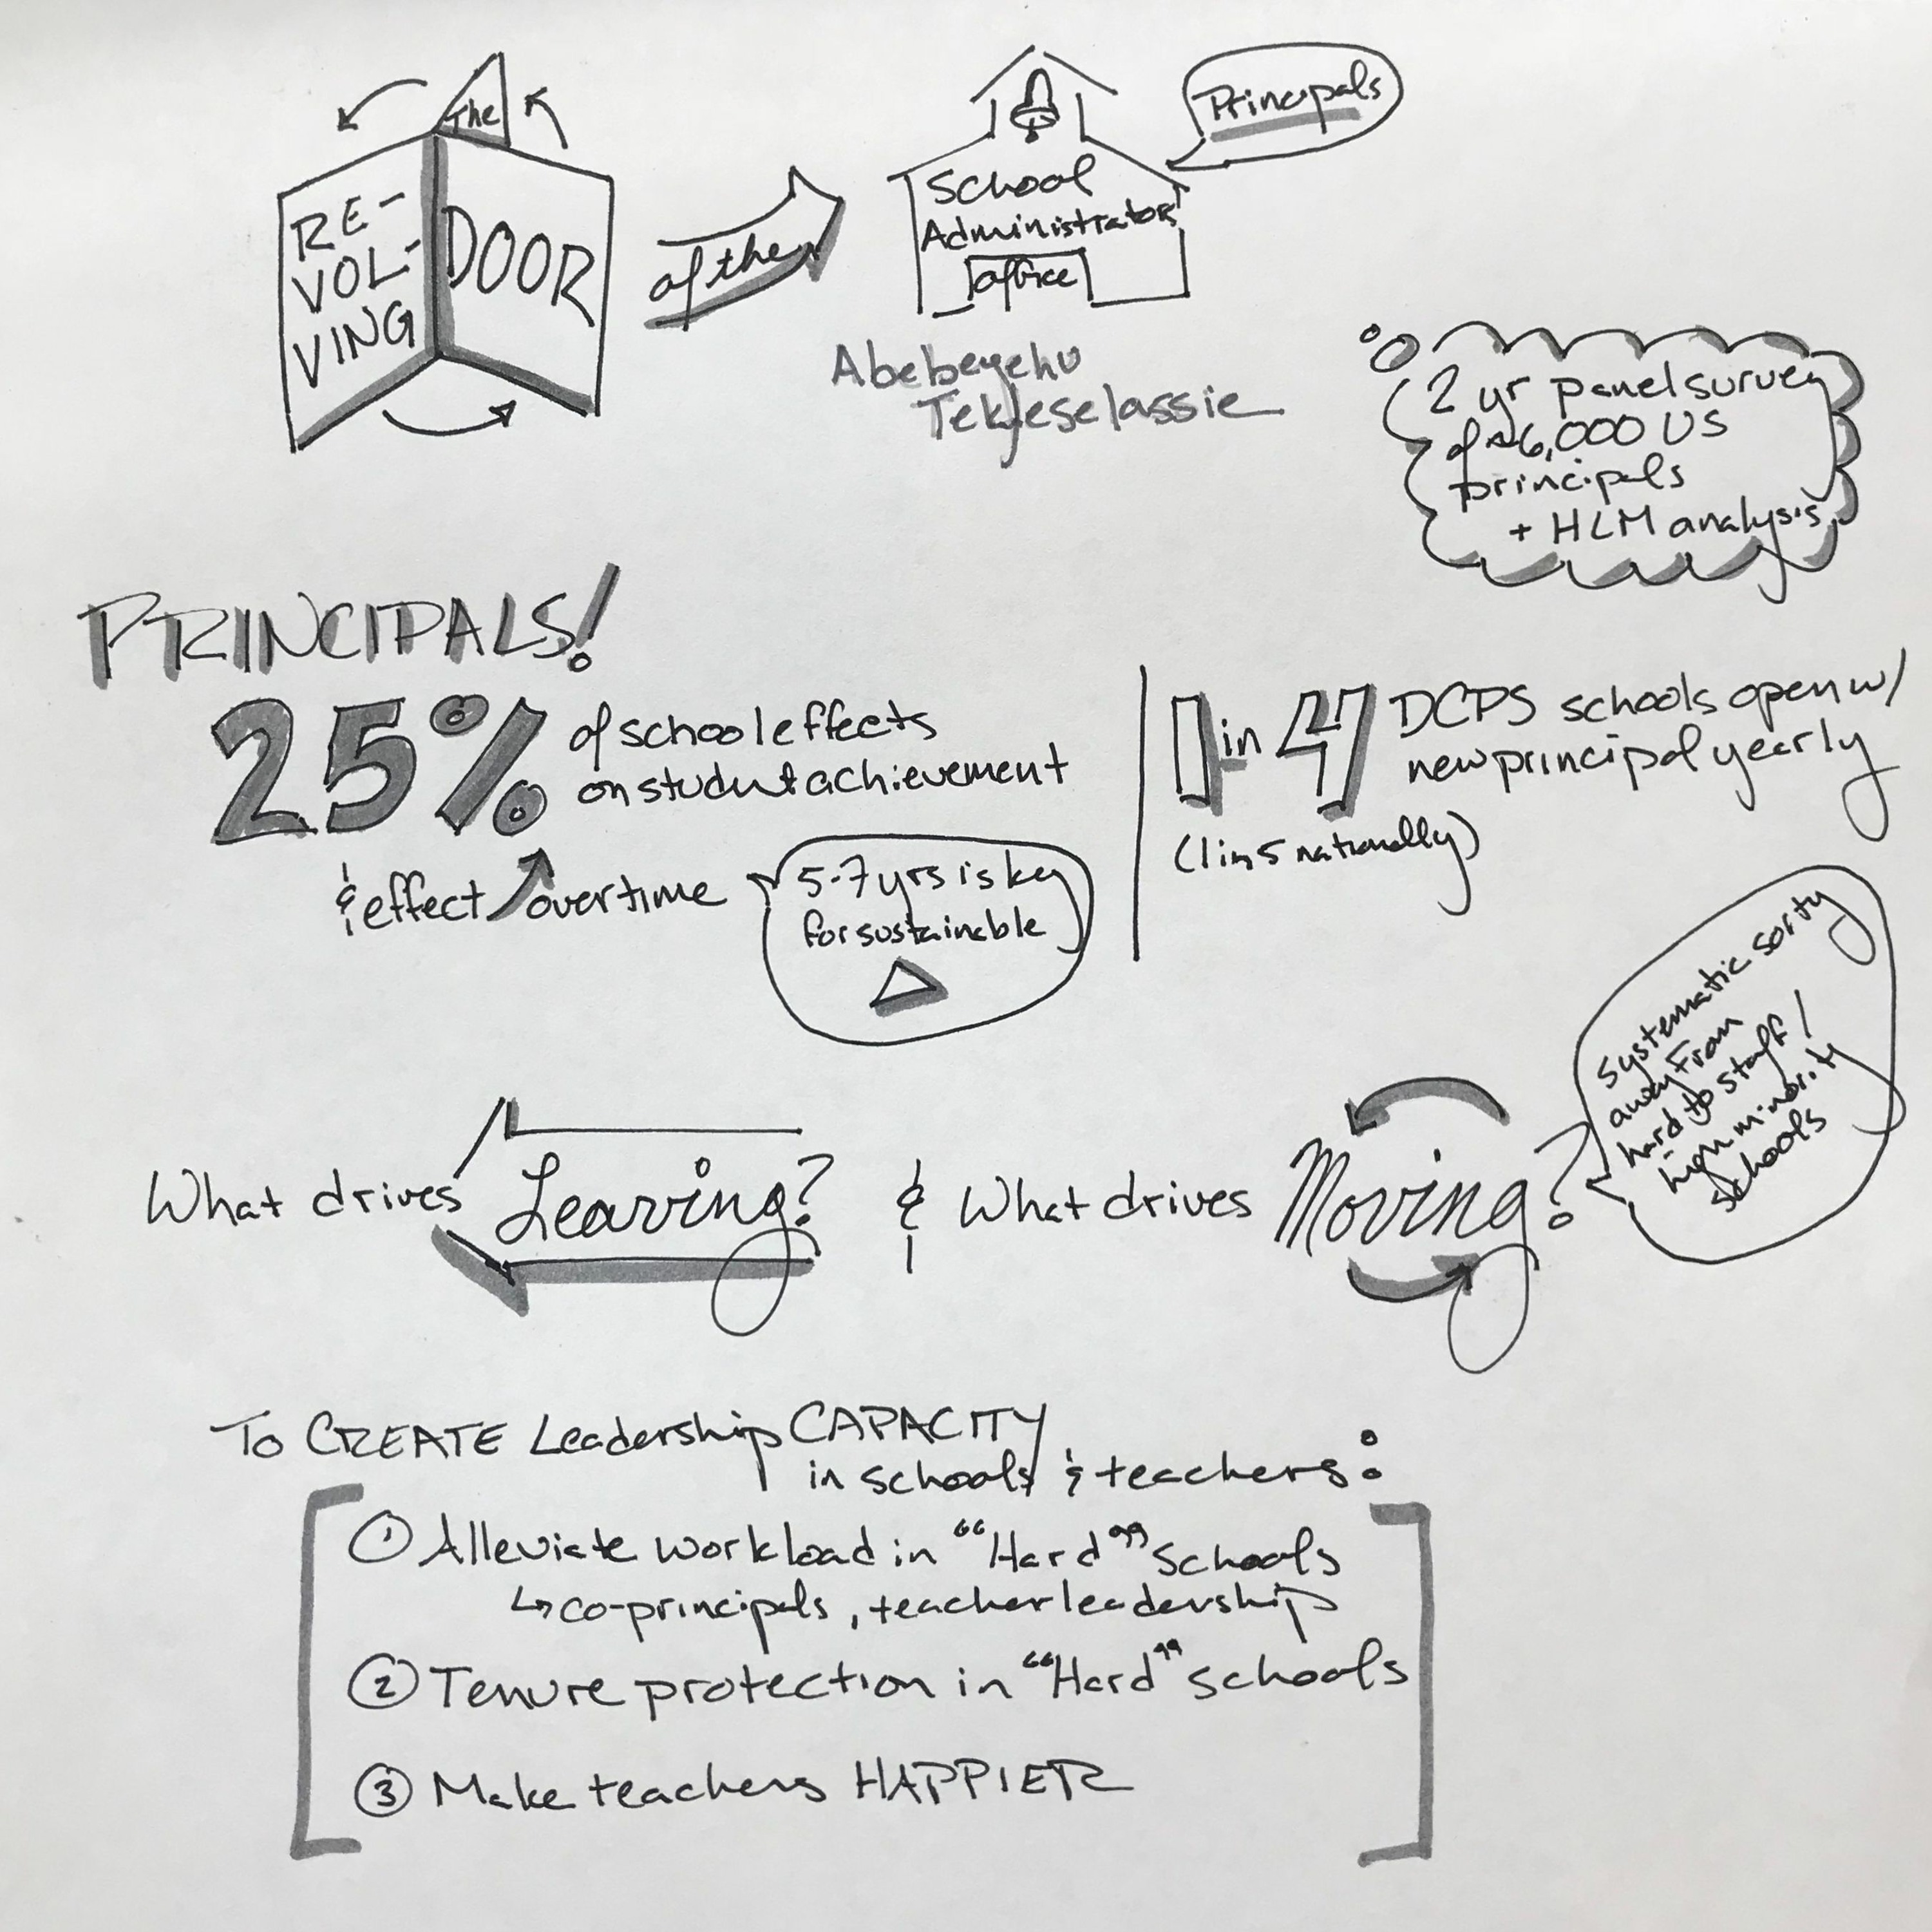 The
RE-
VOL-
VING
DOOR
of the
School
Administrators
office
Principals
Abebeyehu
Tekleselassie
2 yr panel survey
of ~6,000 US
principals
+ HLM analysis
PRINCIPALS!
25% of school effects
on student achievement
& effect over time
5-7 yrs is key
for sustainable
1 in 4 DCPS schools open w/
new principal yearly
(1 in 5 nationally)
What drives Leaving? & What drives Moving?
Systematic sorty
away from
hard to staff /
high minority
schools
To CREATE Leadership CAPACITY
in schools & teachers:
① Alleviate workload in "Hard" Schools
↳ co-principals, teacher leadership
② Tenure protection in "Hard" schools
③ Make teachers HAPPIER